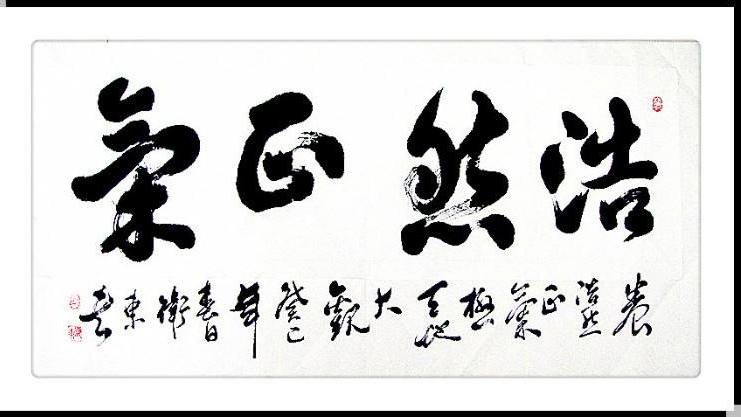 浩然正氣
養浩然正氣極天地大觀癸巳年春日衛東書